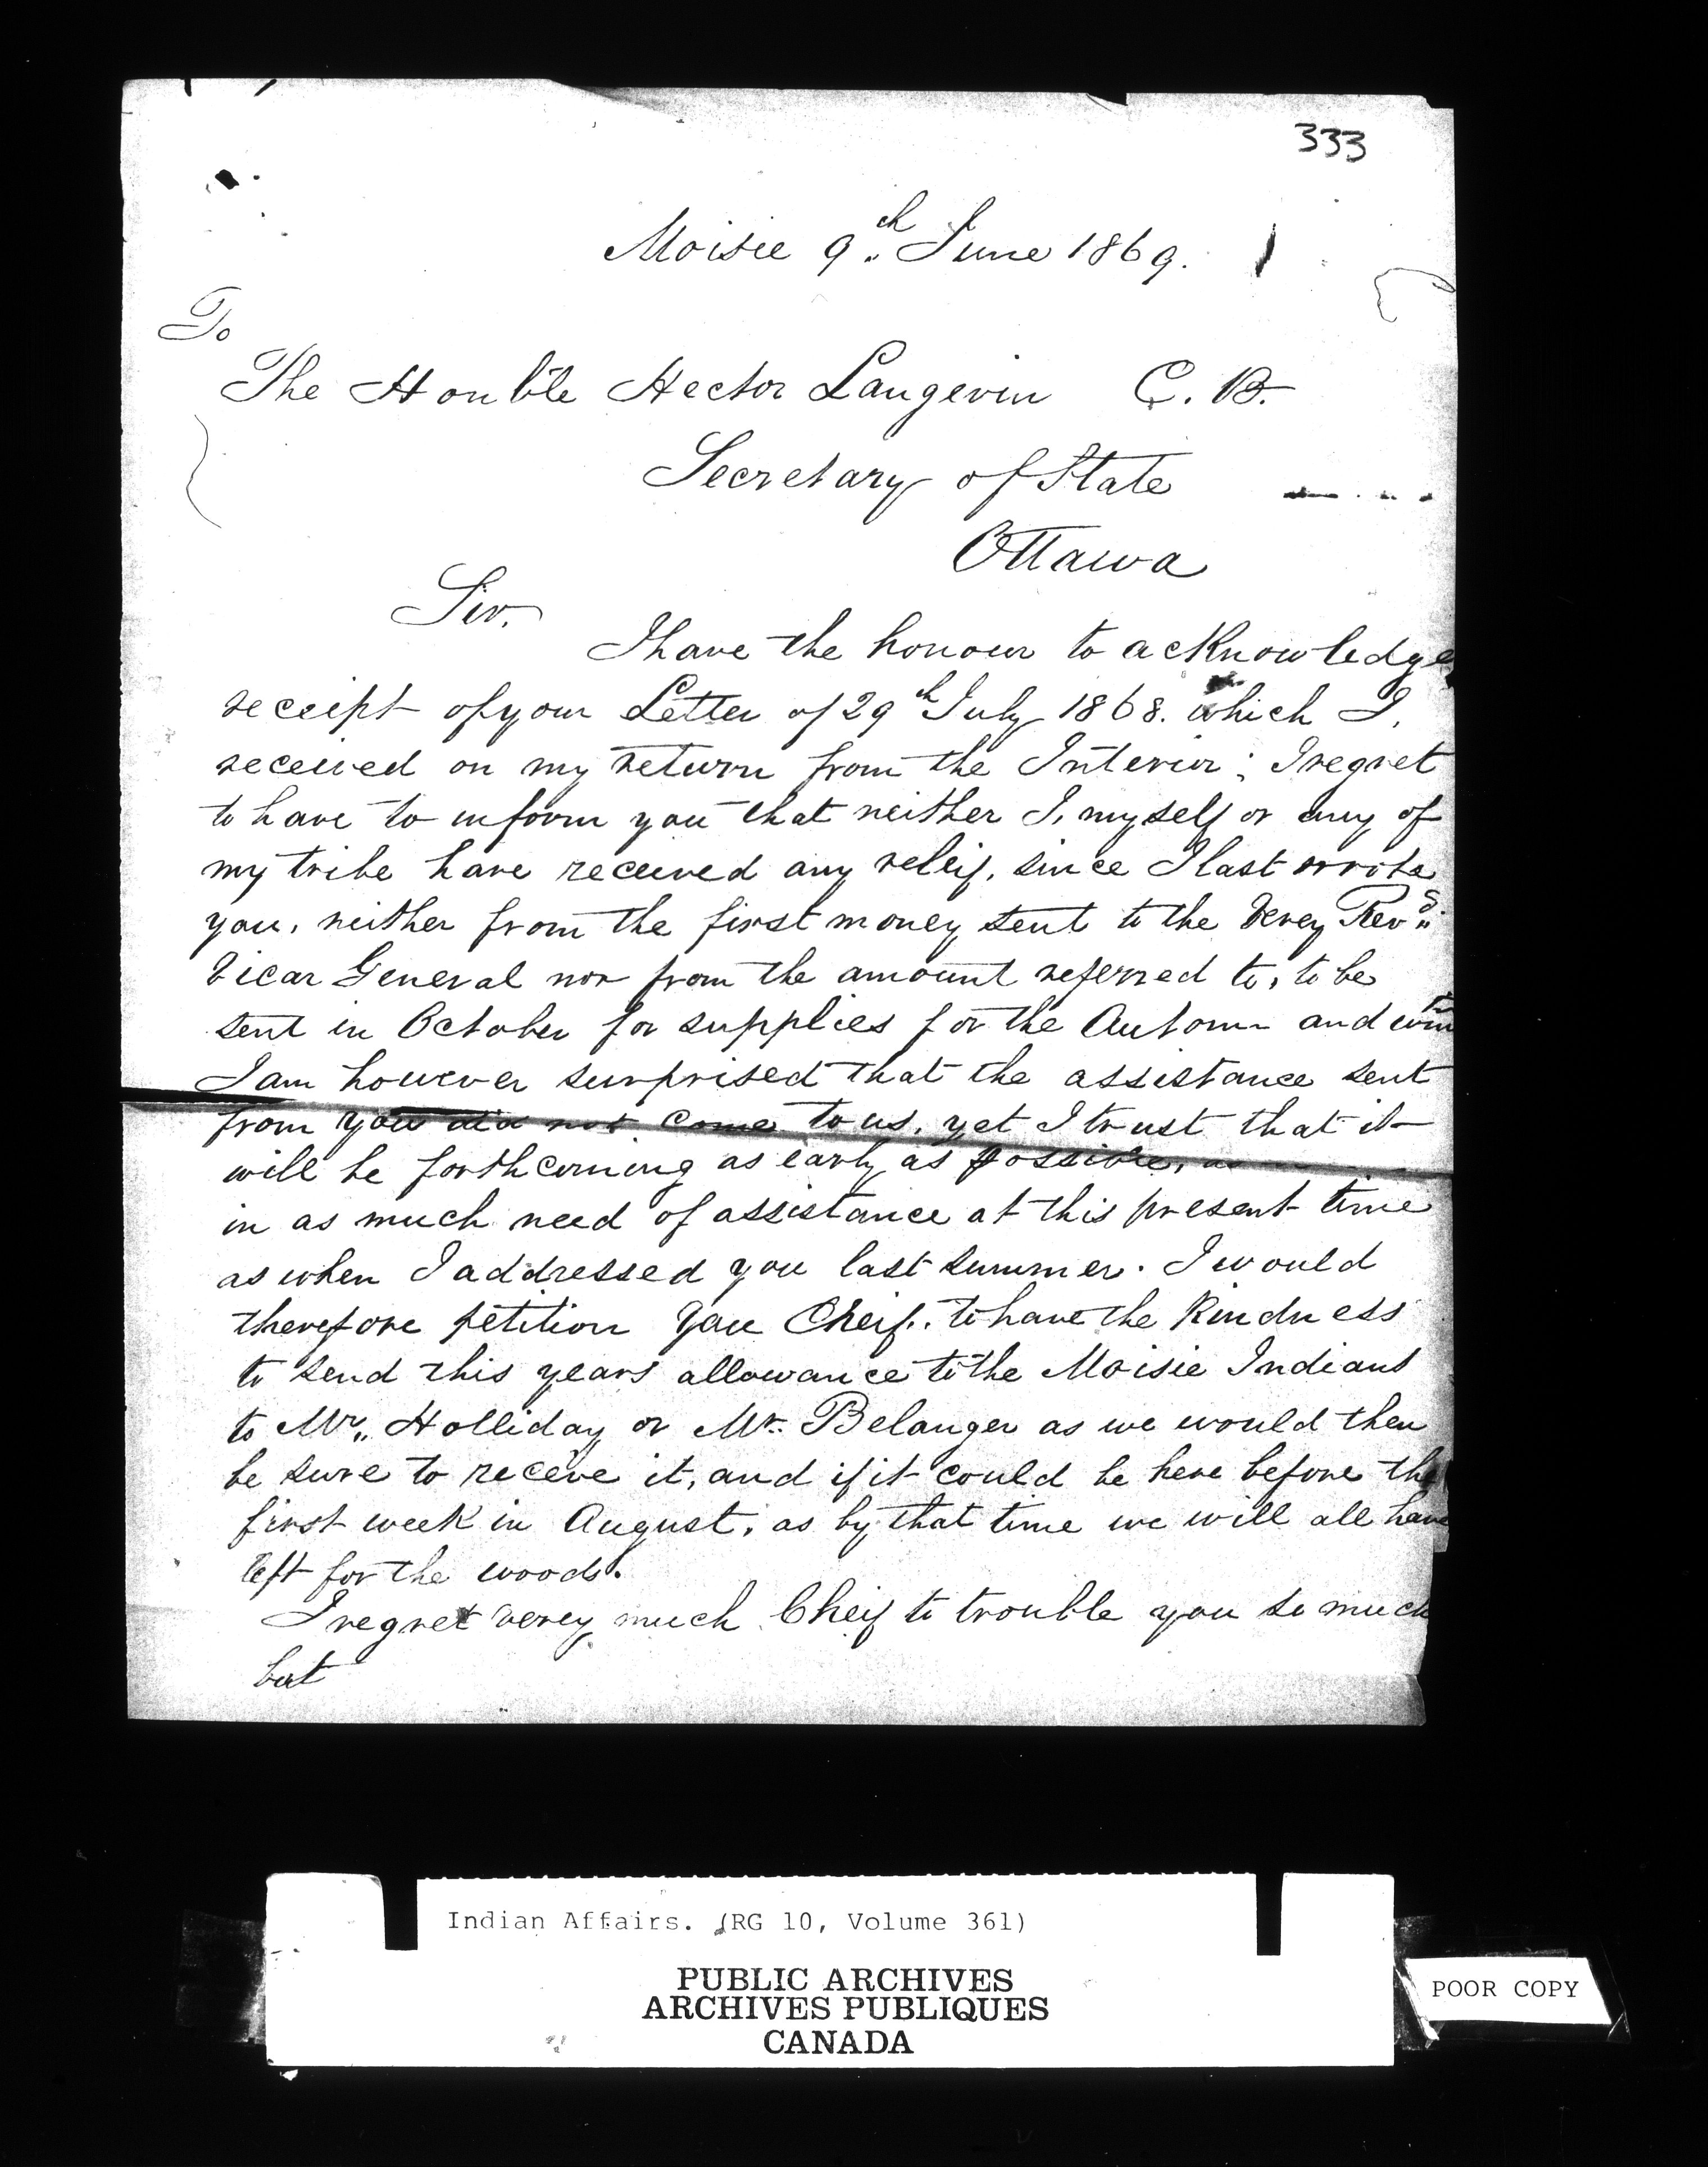 333
Moisie 9th June 1869.
To
The Honble Hector Langevin C. B.
Secretary of State
Ottawa
Sir.
I have the honour to acknowledge
receipt of your Letter of 29th July 1868. which I,
received on my return from the Interior; I regret
to have to inform you that neither I, myself or any of
my tribe have received any releif, since I last wrote
you, neither from the first money sent to the verey Revd
Vicar General nor from the amount referred to, to be
sent in October for supplies for the Autom and
I am however surprised that the assistance sent
from you did not come to us, yet I trust that it
will be forthcoming as early as possible,
in as much need of assistance at this present time
as when I addressed you last summer. I would
therefore petition you Cheif. to have the kindness
to send this years allowance to the Moisie Indians
to Mr. Holliday or Mr. Belanger as we would then
be sure to receve it, and if it could be here before the
first week in August, as by that time we will all have
left for the woods.
I regret verey much Cheif to trouble you so much
but
Indian Affairs. (RG 10, Volume 361)
PUBLIC ARCHIVES
ARCHIVES PUBLIQUES
CANADA
POOR COPY